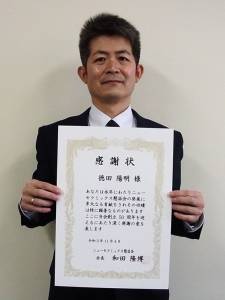 感謝状
徳田陽明 様
あなたは永年にわたりニュー
セラミックス懇話会の発展に
多大なる貢献をされその功績
は特に顕著なものがあります
ここに当会創立50周年を迎
えるにあたり深く感謝の意を
表します
ニューセラミックス懇話会
会長 和田隆博